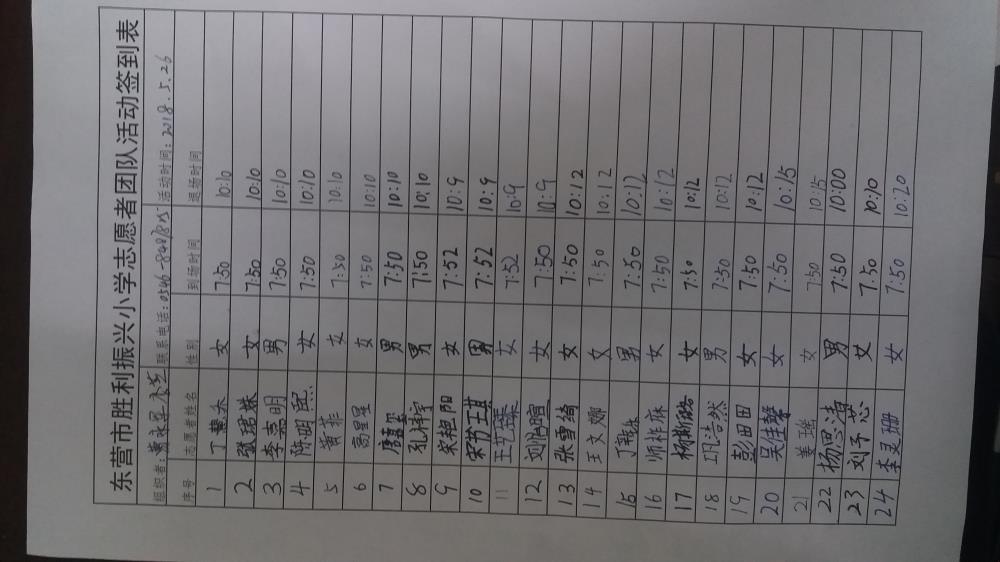 东营市胜利振兴小学志愿者团队活动签到表
组织者: 联系电话:0546- 活动时间:2018.5.26
序号 志愿者姓名 性别 到场时间 退场时间
1 丁慧东 女 7:50 10:10
2 张珺姝 女 7:50 10:10
3 李嘉明 男 7:50 10:10
4 陈明熙 女 7:50 10:10
5 黄菲 女 7:50 10:10
6 葛星星 女 7:50 10:10
7 男 7:50 10:10
8 男 7:50 10:10
9 宋艳阳 女 7:52 10:9
10 男 7:52 10:9
11 女 7:52 10:9
12 女 7:50 10:9
13 张雪绮 女 7:50 10:12
14 王文娜 女 7:50 10:12
15 男 7:50 10:12
16 女 7:50 10:12
17 女 7:50 10:12
18 巩浩然 男 7:50 10:12
19 彭田田 女 7:50 10:12
20 吴佳馨 女 7:50 10:15
21 姜瑶 女 7:50 10:15
22 杨思涛 男 7:50 10:00
23 刘予芯 女 7:50 10:10
24 女 7:50 10:20